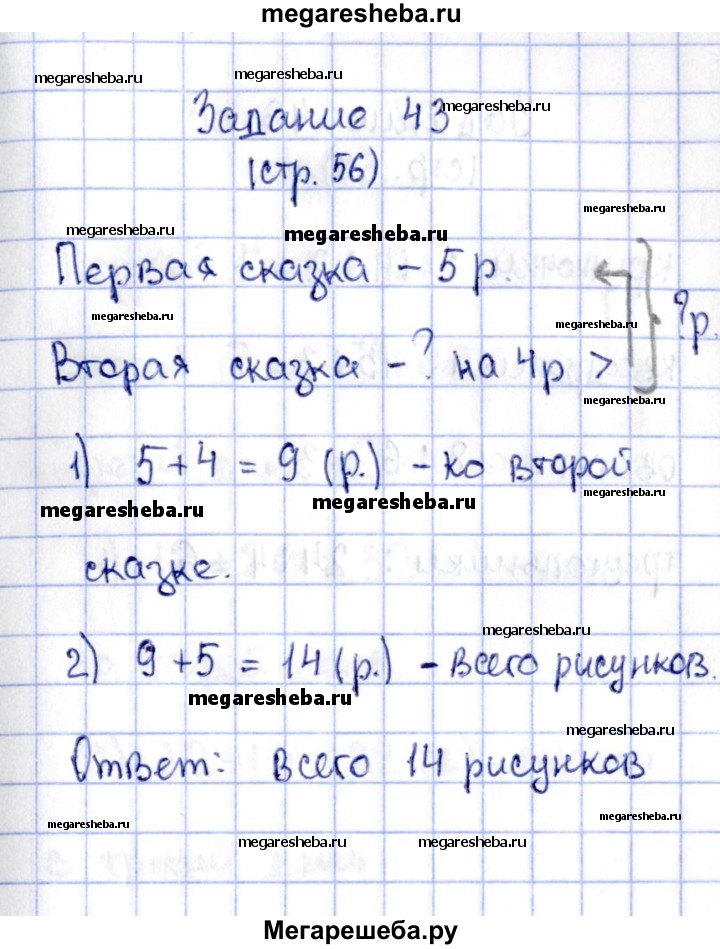 megaresheba.ru
megaresheba.ru megaresheba.ru
Задание 43 megaresheba.ru
(стр. 56)
megaresheba.ru
megaresheba.ru megaresheba.ru
Первая сказка – 5 р.
megaresheba.ru megaresheba.ru
?р.
Вторая сказка – ? на 4р >
megaresheba.ru
1) 5+4 = 9 (р.) – ко второй
megaresheba.ru megaresheba.ru megaresheba.ru
сказке.
megaresheba.ru
2) 9+5 = 14 (р.) – всего рисунков.
megaresheba.ru
megaresheba.ru
Ответ: всего 14 рисунков
megaresheba.ru megaresheba.ru
megaresheba.ru megaresheba.ru
Мегарешеба.ру